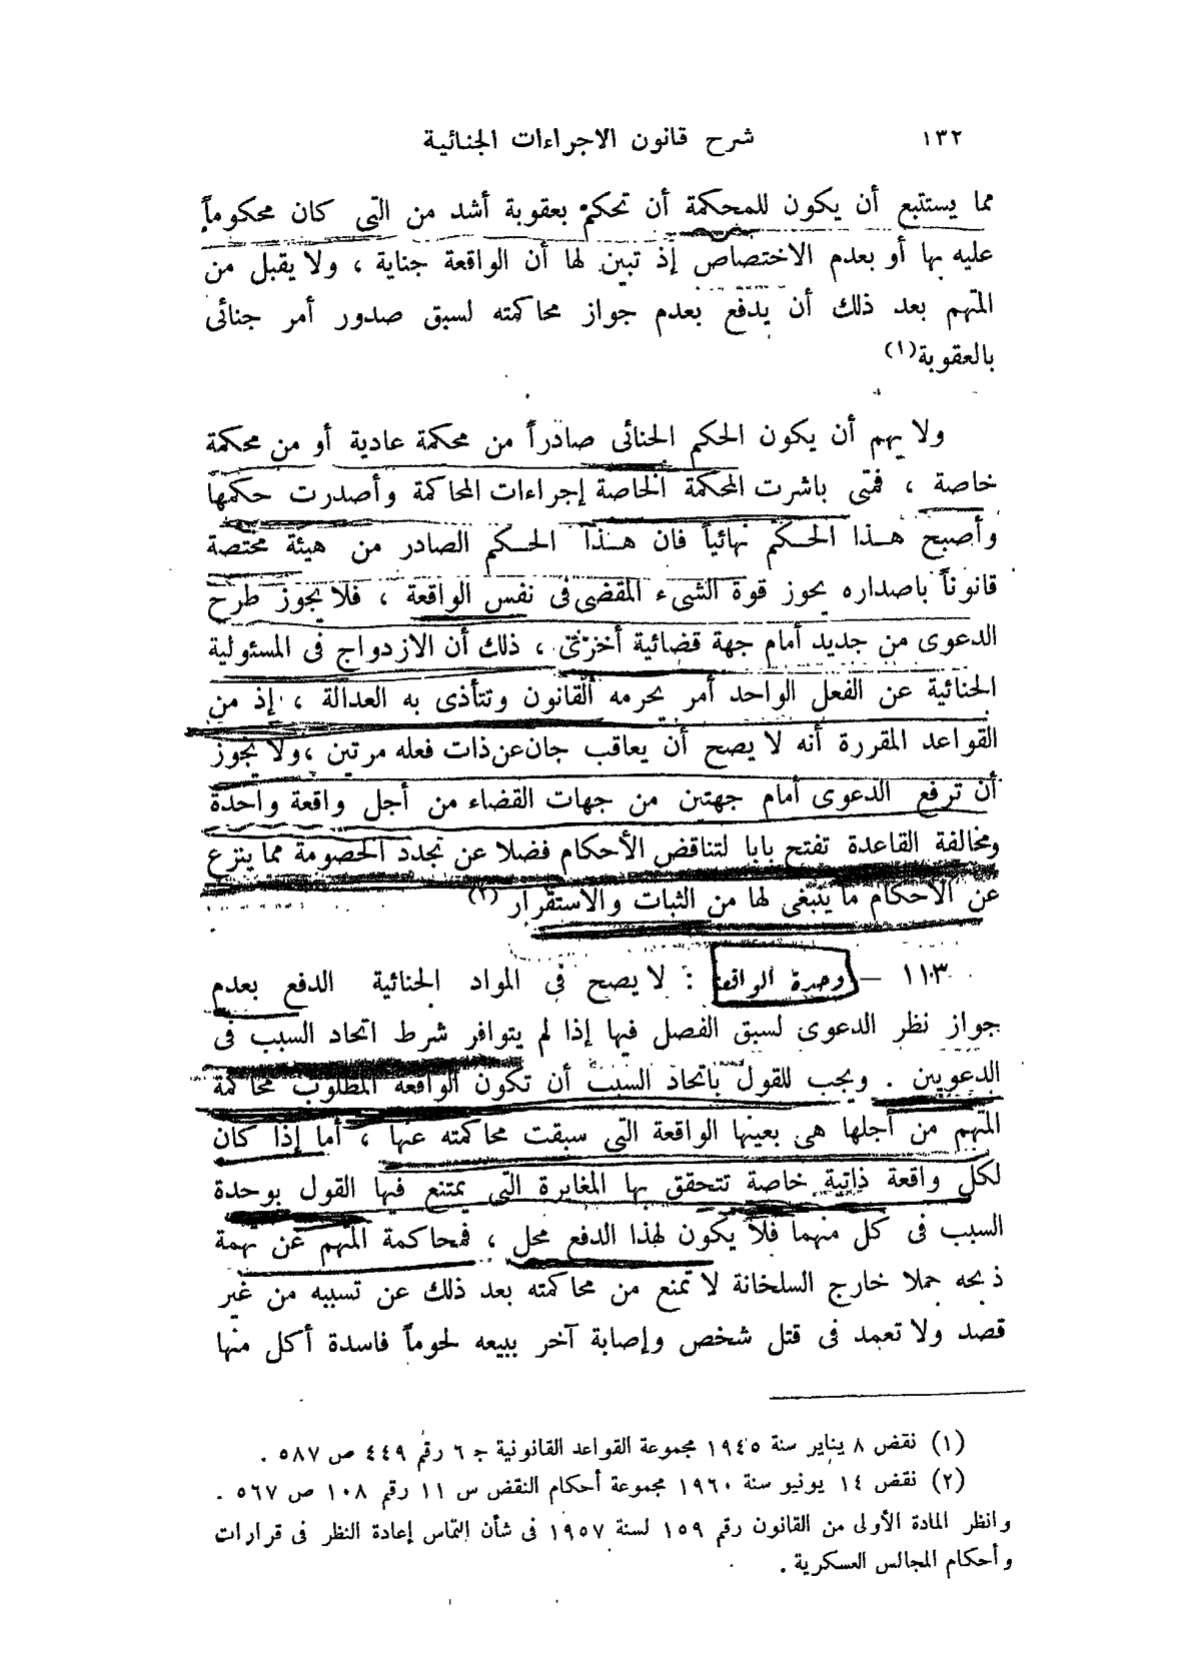 ١٣٢
شرح قانون الاجراءات الجنائية
مما يستتبع أن يكون للمحكمة أن تحكم بعقوبة أشد من التى كان محكوماً
عليه بها أو بعدم الاختصاص إذ تبين لها أن الواقعة جناية ، ولا يقبل من
المتهم بعد ذلك أن يدفع بعدم جواز محاكمته لسبق صدور أمر جنائى
بالعقوبة(١)
ولا يهم أن يكون الحكم الجنائى صادراً من محكمة عادية أو من محكمة
خاصة ، فمتى باشرت المحكمة الخاصة إجراءات المحاكمة وأصدرت حكمها
وأصبح هـذا الحـكم نهائياً فان هـذا الحـكم الصادر من هيئة مختصة
قانوناً باصداره يحوز قوة الشىء المقضى فى نفس الواقعة ، فلا يجوز طرح
الدعوى من جديد أمام جهة قضائية أخرى ، ذلك أن الازدواج فى المسئولية
الجنائية عن الفعل الواحد أمر يحرمه القانون وتتأذى به العدالة ، إذ من
القواعد المقررة أنه لا يصح أن يعاقب جان عن ذات فعله مرتين ، ولا تجوز
أن ترفع الدعوى أمام جهتين من جهات القضاء من أجل واقعة واحدة
ومخالفة القاعدة تفتح بابا لتناقض الأحكام فضلا عن تجدد الخصومة مما ينزع
عن الأحكام ما ينبغى لها من الثبات والاستقرار (٢)
١١٠٣ – وحدة الواقعة : لا يصح فى المواد الجنائية الدفع بعدم
جواز نظر الدعوى لسبق الفصل فيها إذا لم يتوافر شرط اتحاد السبب فى
الدعويين . ويجب للقول باتحاد السبب أن تكون الواقعة المطلوب محاكمة
المتهم من أجلها هى بعينها الواقعة التى سبقت محاكمته عنها ، أما إذا كان
لكل واقعة ذاتية خاصة تتحقق بها المغايرة التى يمتنع فيها القول بوحدة
السبب فى كل منهما فلا يكون لهذا الدفع محل ، فمحاكمة المتهم عن تهمة
ذبحه حملا خارج السلخانة لا تمنع من محاكمته بعد ذلك عن تسببه من غير
قصد ولا تعمد فى قتل شخص وإصابة آخر ببيعه لحوماً فاسدة أكل منها
(١) نقض ٨ يناير سنة ١٩٤٥ مجموعة القواعد القانونية ج ٦ رقم ٤٤٩ ص ٥٨٧ .
(٢) نقض ١٤ يونيو سنة ١٩٦٠ مجموعة أحكام النقض س ١١ رقم ١٠٨ ص ٥٦٧ .
وانظر المادة الأولى من القانون رقم ١٥٩ لسنة ١٩٥٧ فى شأن التماس إعادة النظر فى قرارات
وأحكام المجالس العسكرية .